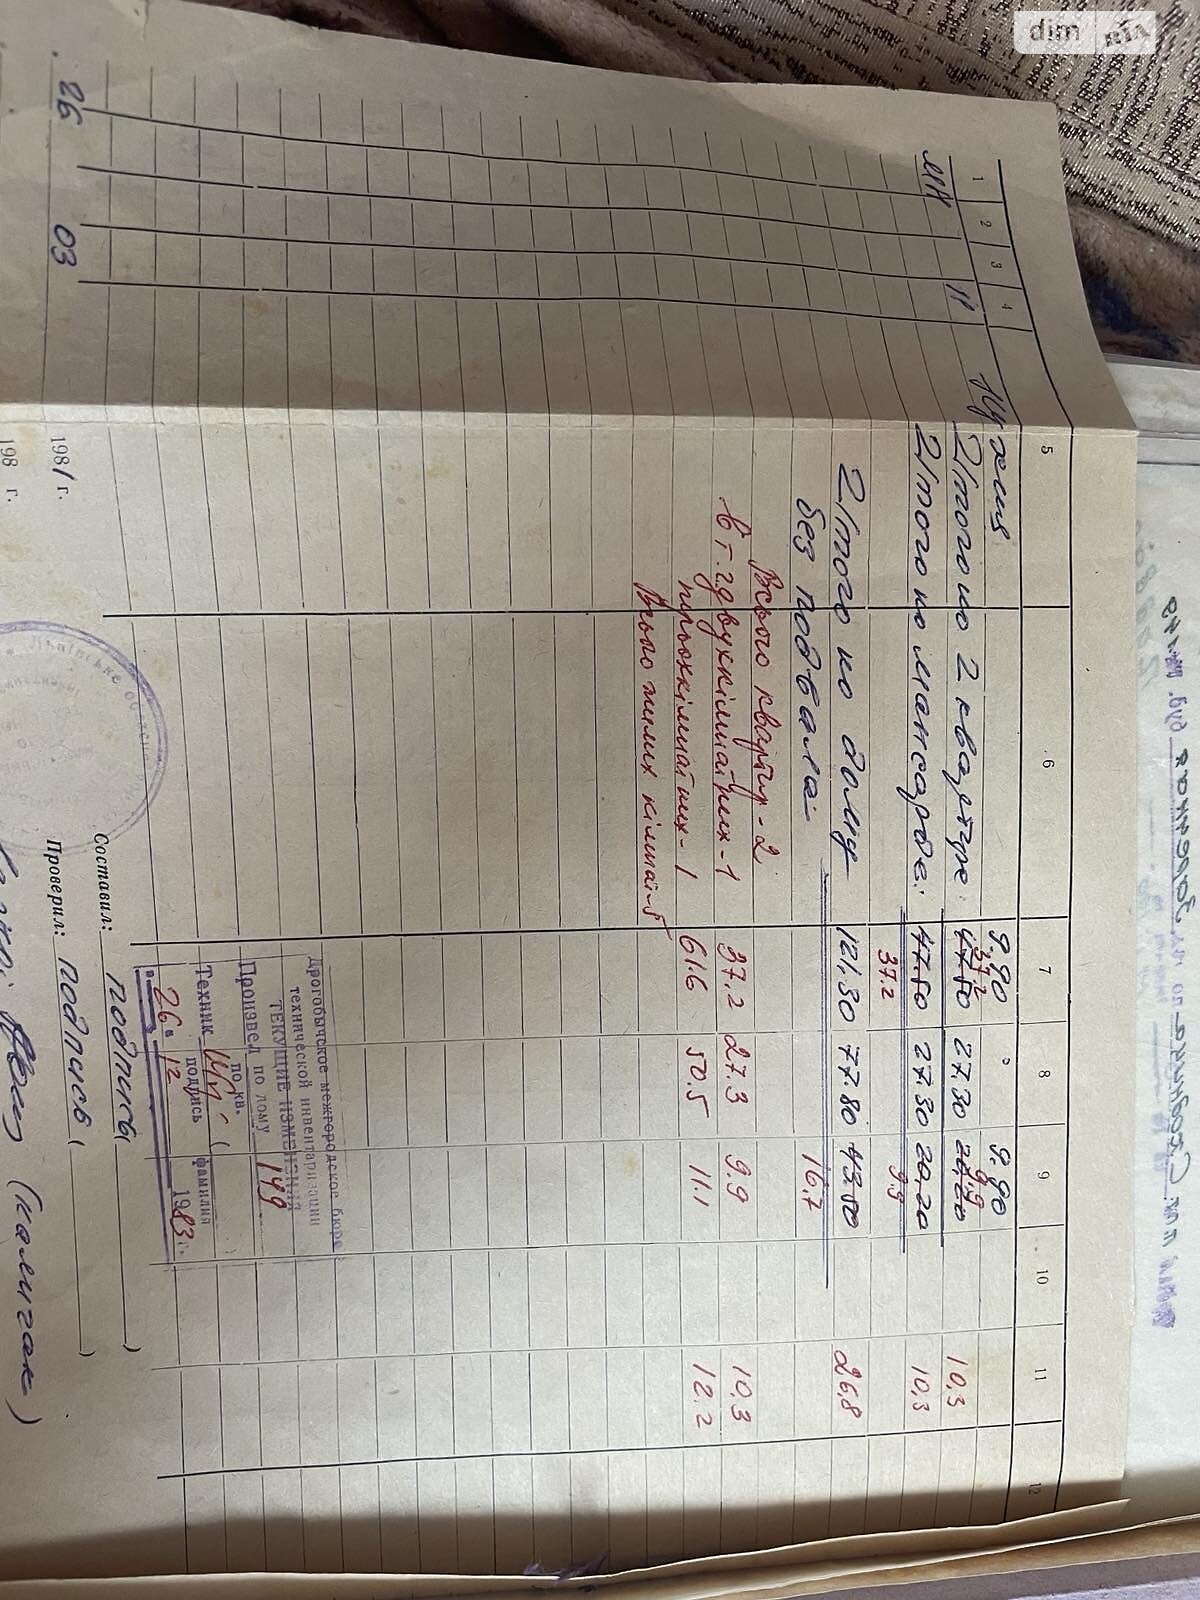 dim ріа
1 2 3 4 5 6 7 8 9 10 11 12
МН 11 кухня 9.90 9.90
Итого по 2 квартире: 47.50 37,2 27.30 20,20 9,9 10,3
Итого по мансарде: 47.50 27.30 20.20 10,3
37,2 9,9
Итого по дому 121,30 77.80 43.50 26,8
без подвала: 16,7
Всього квартир - 2
в т.ч. двухкімнатних - 1 37,2 27.3 9,9 10.3
трьохкімнатних - 1 61.6 50.5 11.1 12.2
Всього жилих кімнат - 5
Дрогобычское межгородское бюро
технической инвентаризации
ТЕКУЩИЕ ИЗМЕНЕНИЯ
Произвел по дому 149
по кв.
Техник (
подпись фамилия
26 " 12 1983 г.
Составил: подпись ( )
26 03 1981 г. Проверил: подпись ( )
198 г. (Калигак)